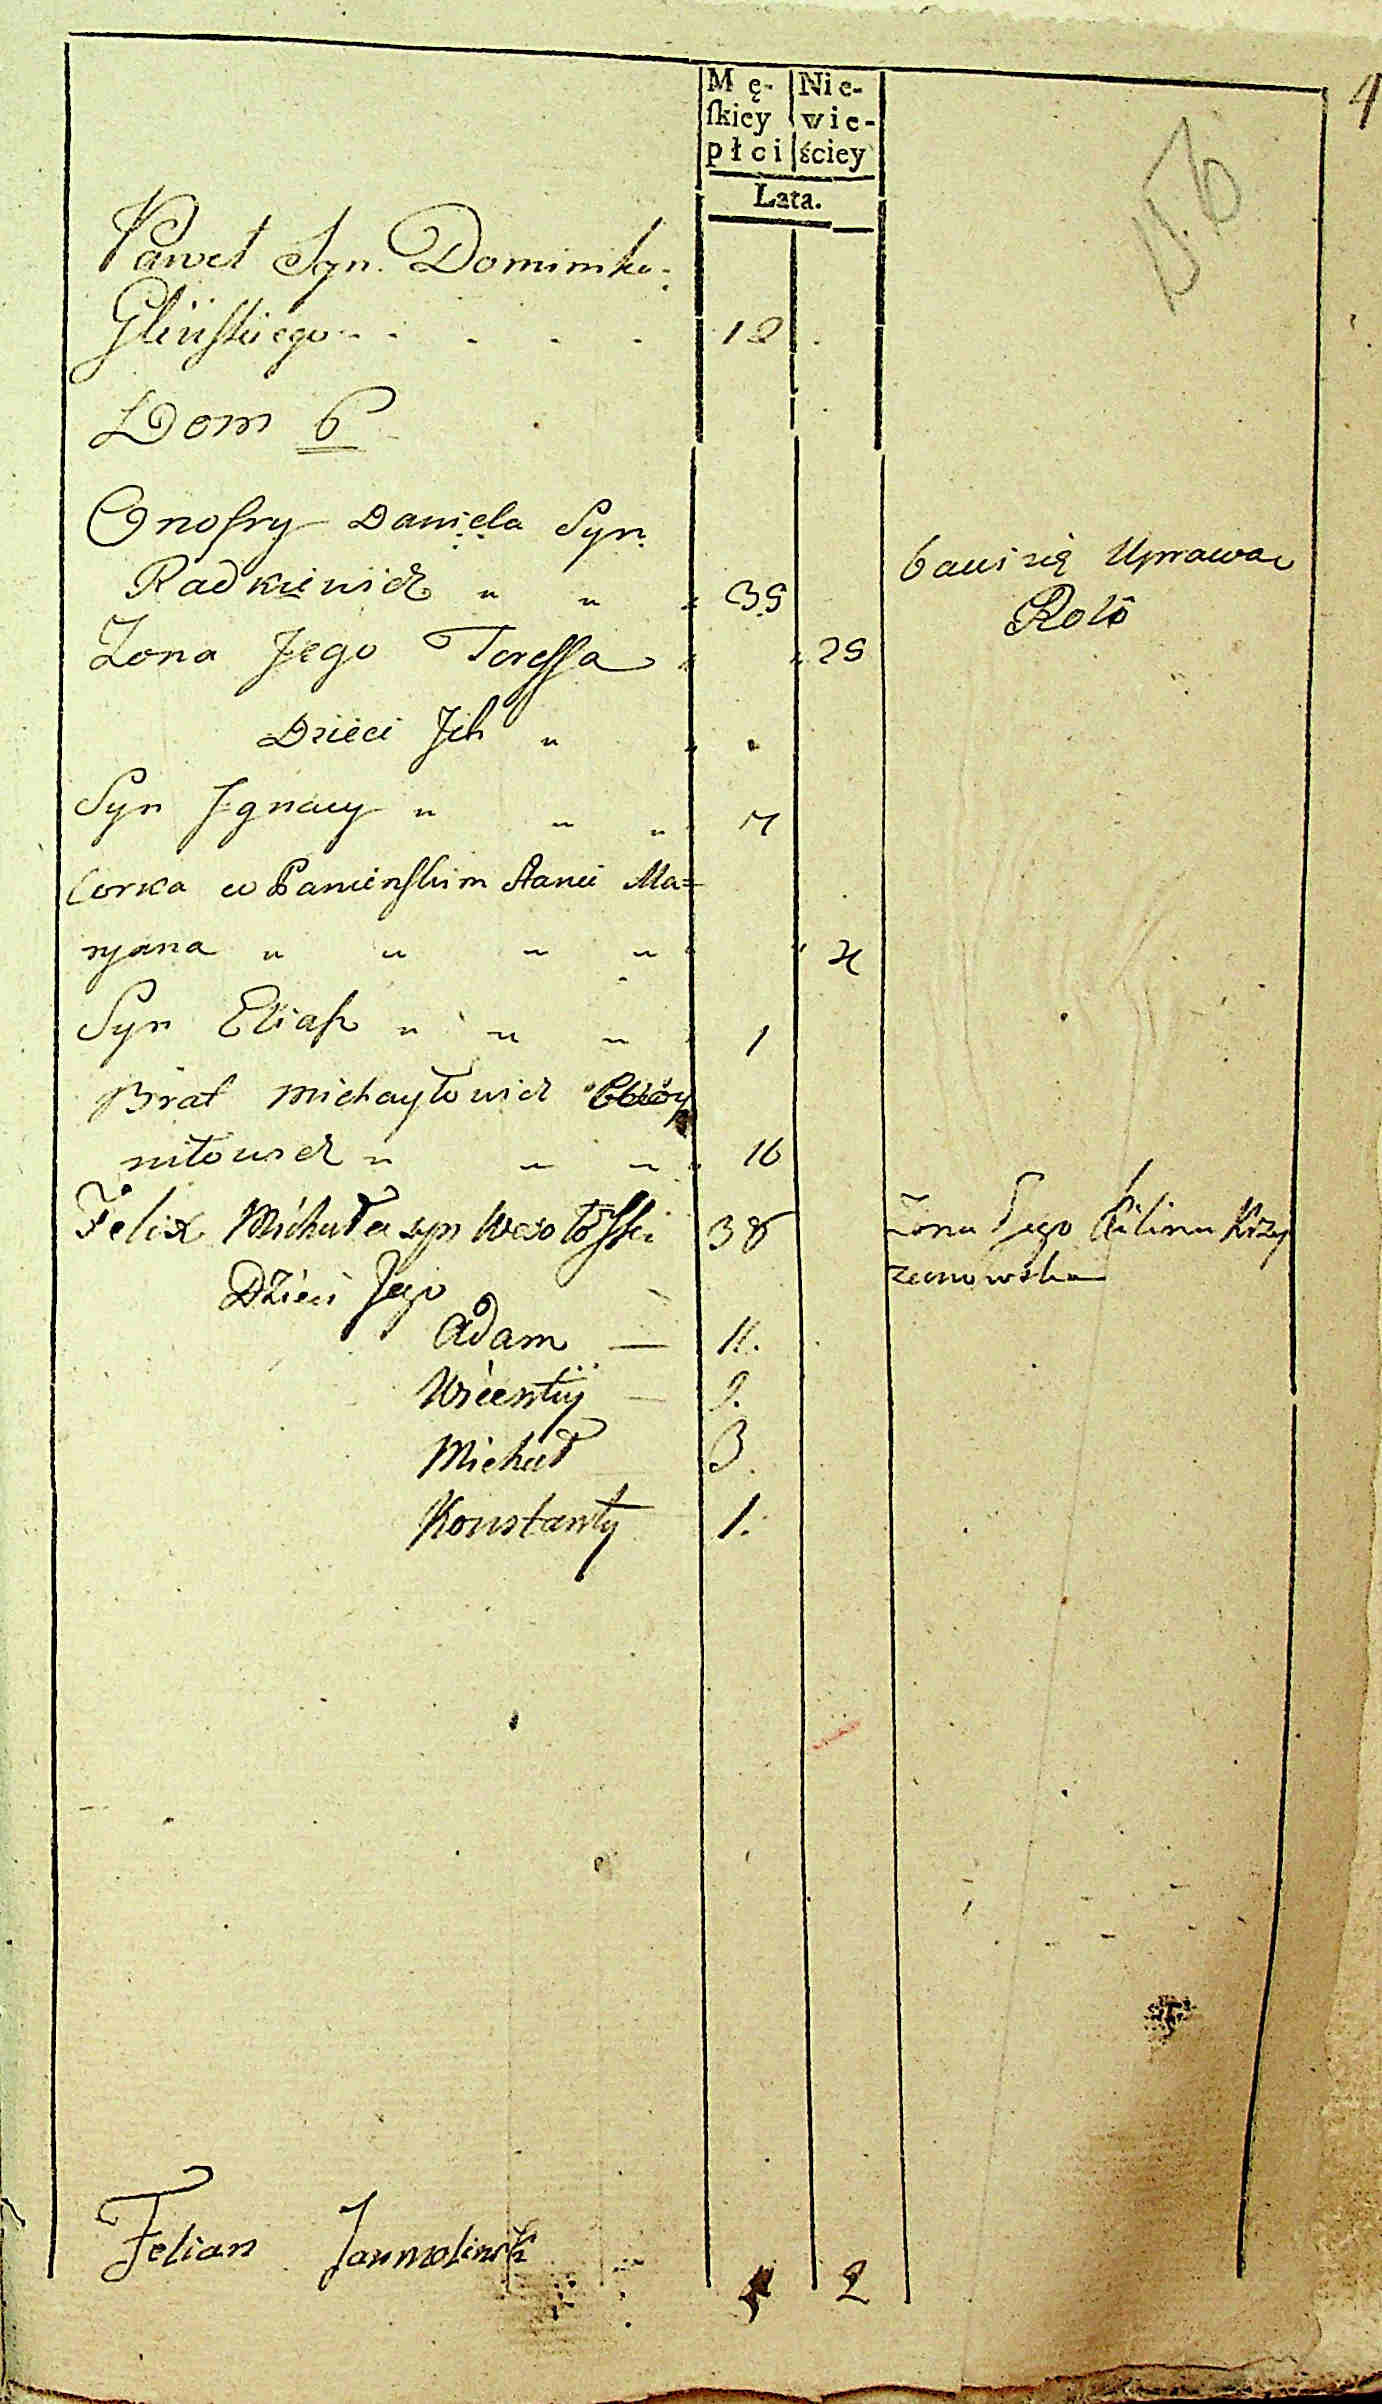 4
Mę- Nie-
ſkiey wie-
płci ściey
Lata.
N. 6
Paweł Syn Dominika
Glińskiego - - - - - 12
Dom 6
Onofry Daniela Syn
bawi się Uprawą
Radkiewicz " " " 35
Roli
Zona Jego Teressa " " 25
Dzieci Jch " " "
Syn Jgnacy " " " 7
Corka w Panienskim Stanie Ma=
ryana " " " " " 4
Syn Eliasz " " " " 1
Brat Michayłowicz
niłowicz " " " " 16
Felix Michała syn Wesołosski 38
Zona Jego Krzy
zanowska
Dzieci Jego
Adam — 11.
Wicenty — 9.
Michał 3.
Konstanty 1.
Felian Jarmoliński
2